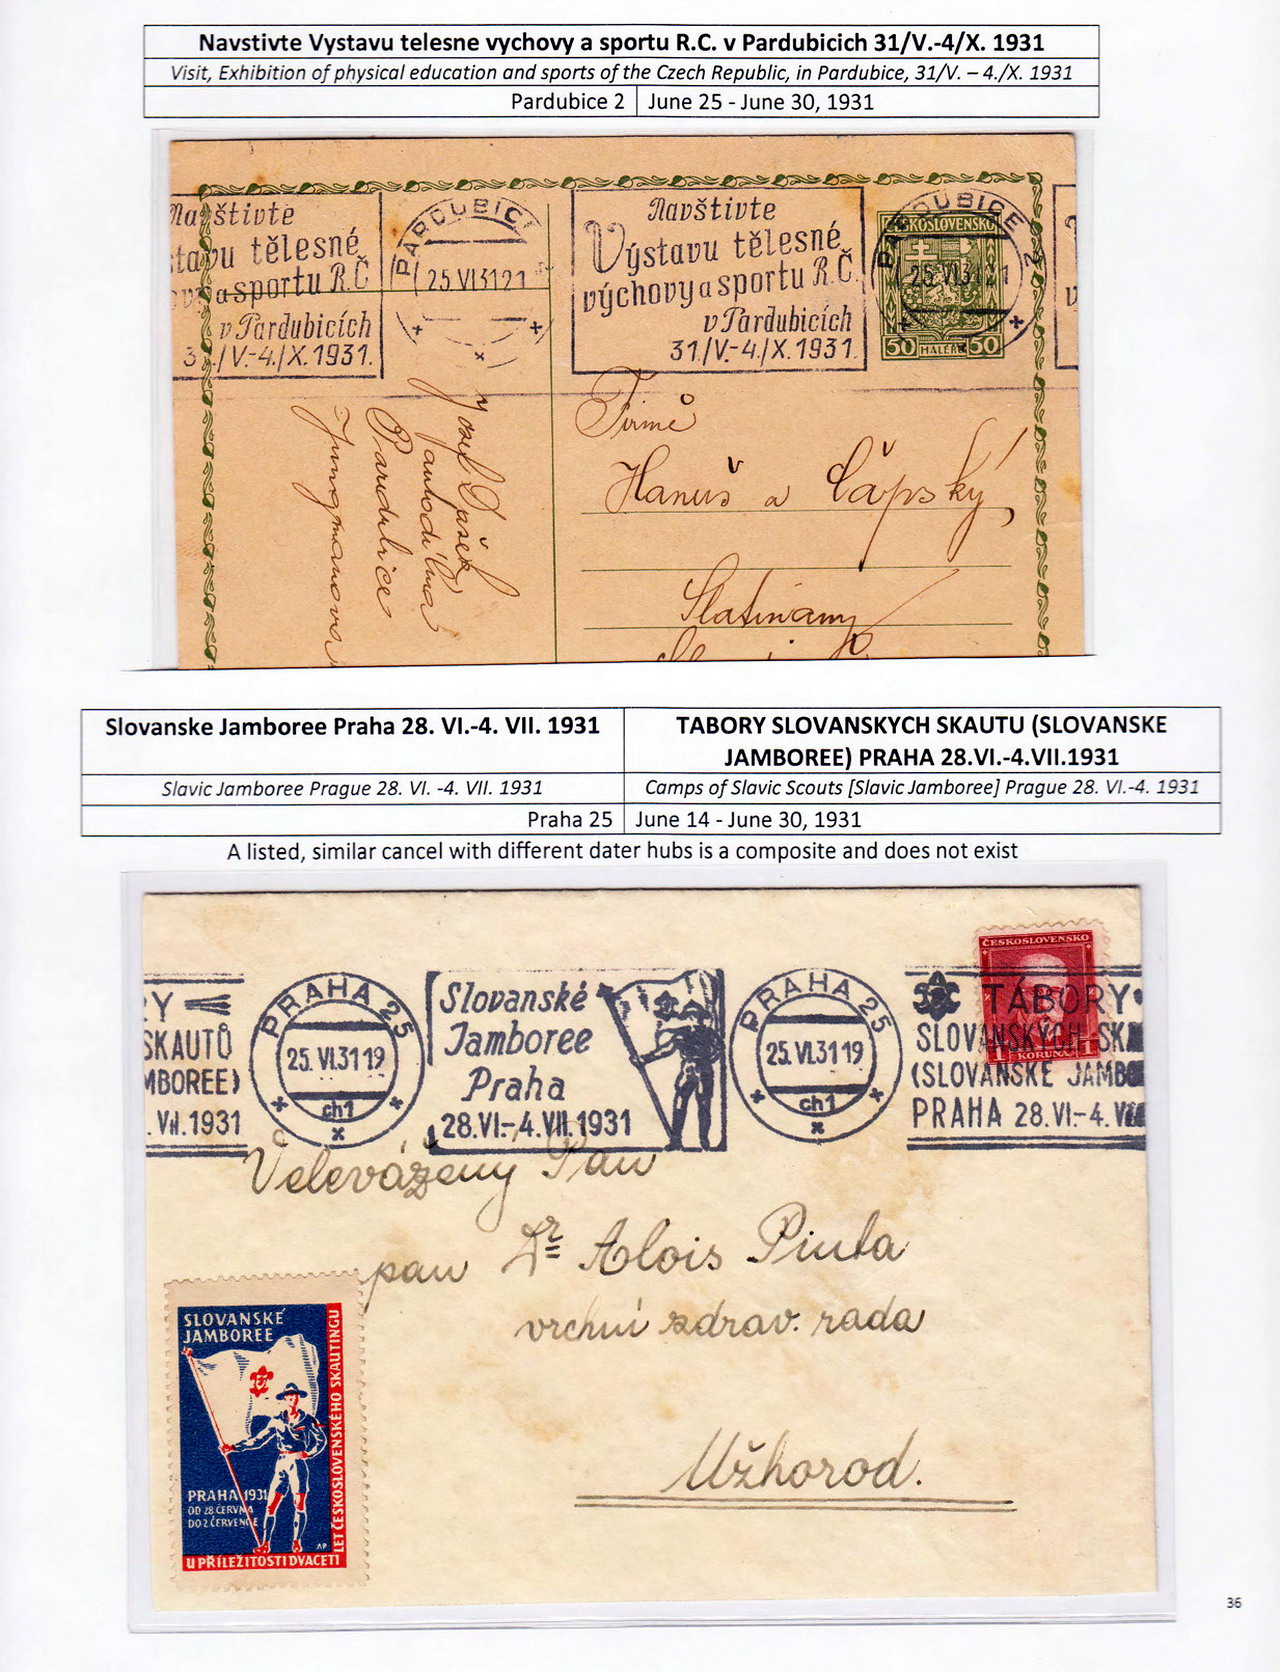 Navstivte Vystavu telesne vychovy a sportu R.C. v Pardubicich 31/V.-4/X. 1931
Visit, Exhibition of physical education and sports of the Czech Republic, in Pardubice, 31/V. – 4./X. 1931
Pardubice 2 June 25 - June 30, 1931
Navštivte
stavu tělesné
a sportu R.Č
v Pardubicích
3 ./V.-4./X. 1931.
PARDUBIC
25.VI.31 21
Navštivte
Výstavu tělesné
výchovy a sportu R.Č.
v Pardubicích
31./V.-4./X. 1931.
PARDUBICE 2
25.VI.31 21
ČESKOSLOVENSKO
50 HALÉŘ 50
Josef
Pardubice
Jungmanova
Firmě
Hanuš a Čápský,
Slatiňany
Slovanske Jamboree Praha 28. VI.-4. VII. 1931
TABORY SLOVANSKYCH SKAUTU (SLOVANSKE
JAMBOREE) PRAHA 28.VI.-4.VII.1931
Slavic Jamboree Prague 28. VI. -4. VII. 1931
Camps of Slavic Scouts [Slavic Jamboree] Prague 28. VI.-4. 1931
Praha 25 June 14 - June 30, 1931
A listed, similar cancel with different dater hubs is a composite and does not exist
RY
SKAUTŮ
MBOREE)
. VII.1931
PRAHA 25
25.VI.31 19
ch1
Slovanské
Jamboree
Praha
28.VI.-4.VII.1931
PRAHA 25
25.VI.31 19
ch1
ČESKOSLOVENSKO
1 KORUNA 1
TÁBORY
SLOVANSKÝCH SKA
(SLOVANSKÉ JAMBO
PRAHA 28.VI.-4. VII
Velevážený Pan
pan Dr Alois Pinta
vrchní zdrav. rada
Užhorod.
SLOVANSKÉ
JAMBOREE
PRAHA 1931
OD 28 ČERVNA
DO 2 ČERVENCE
AP
U PŘÍLEŽITOSTI DVACETI
LET ČESKOSLOVENSKÉHO SKAUTINGU
36